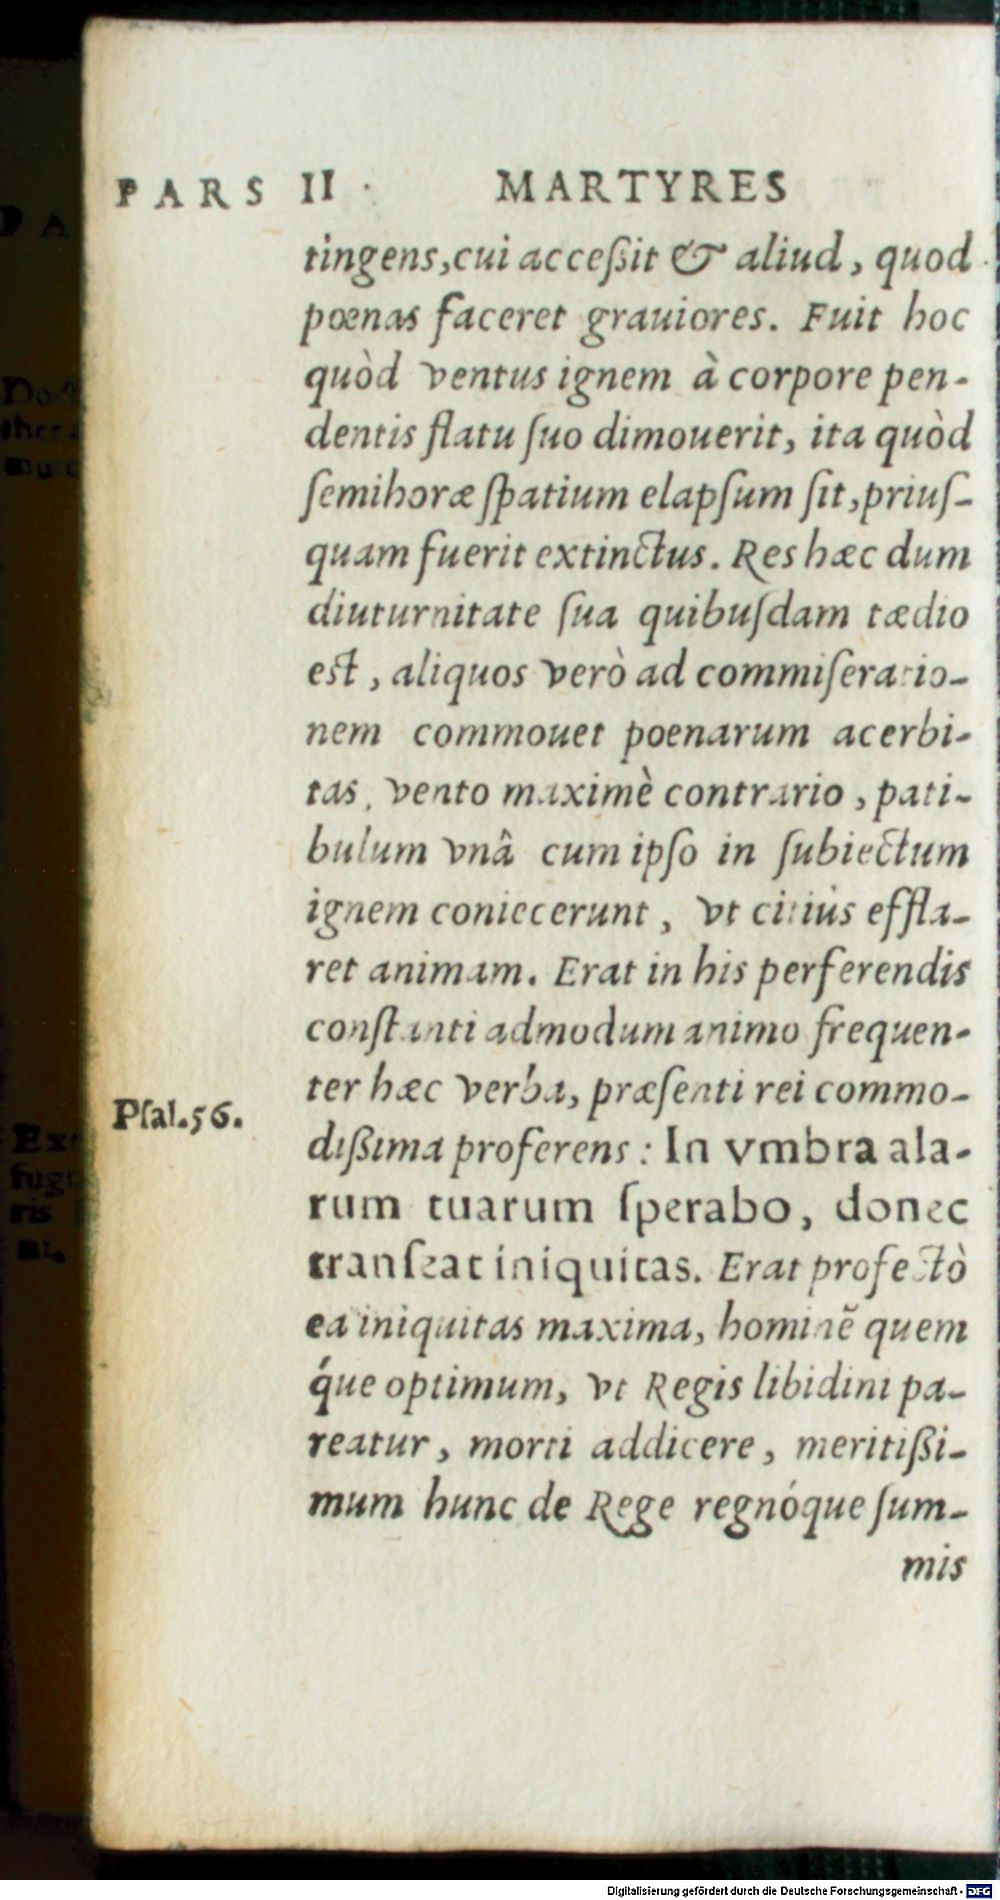 PARS II. MARTYRES
tingens, cui acceßit & aliud, quod
pœnas faceret grauiores. Fuit hoc
quòd ventus ignem à corpore pen-
dentis flatu ſuo dimouerit, ita quòd
ſemihoræ ſpatium elapſum ſit, priuſ-
quam fuerit extinctus. Res hæc dum
diuturnitate ſua quibuſdam tædio
eſt, aliquos verò ad commiſeratio-
nem commouet poenarum acerbi-
tas, vento maximè contrario, pati-
bulum vnâ cum ipſo in ſubiectum
ignem coniecerunt, vt citiùs effla-
ret animam. Erat in his perferendis
conſtanti admodum animo frequen-
ter hæc verba, præſenti rei commo-
Pſal. 56.
dißima proferens: In vmbra ala-
rum tuarum ſperabo, donec
tranſeat iniquitas. Erat profectò
ea iniquitas maxima, hominẽ quem
q́ue optimum, vt Regis libidini pa-
reatur, morti addicere, meritißi-
mum hunc de Rege regnóque ſum-
mis
Digitalisierung gefördert durch die Deutsche Forschungsgemeinschaft - DFG